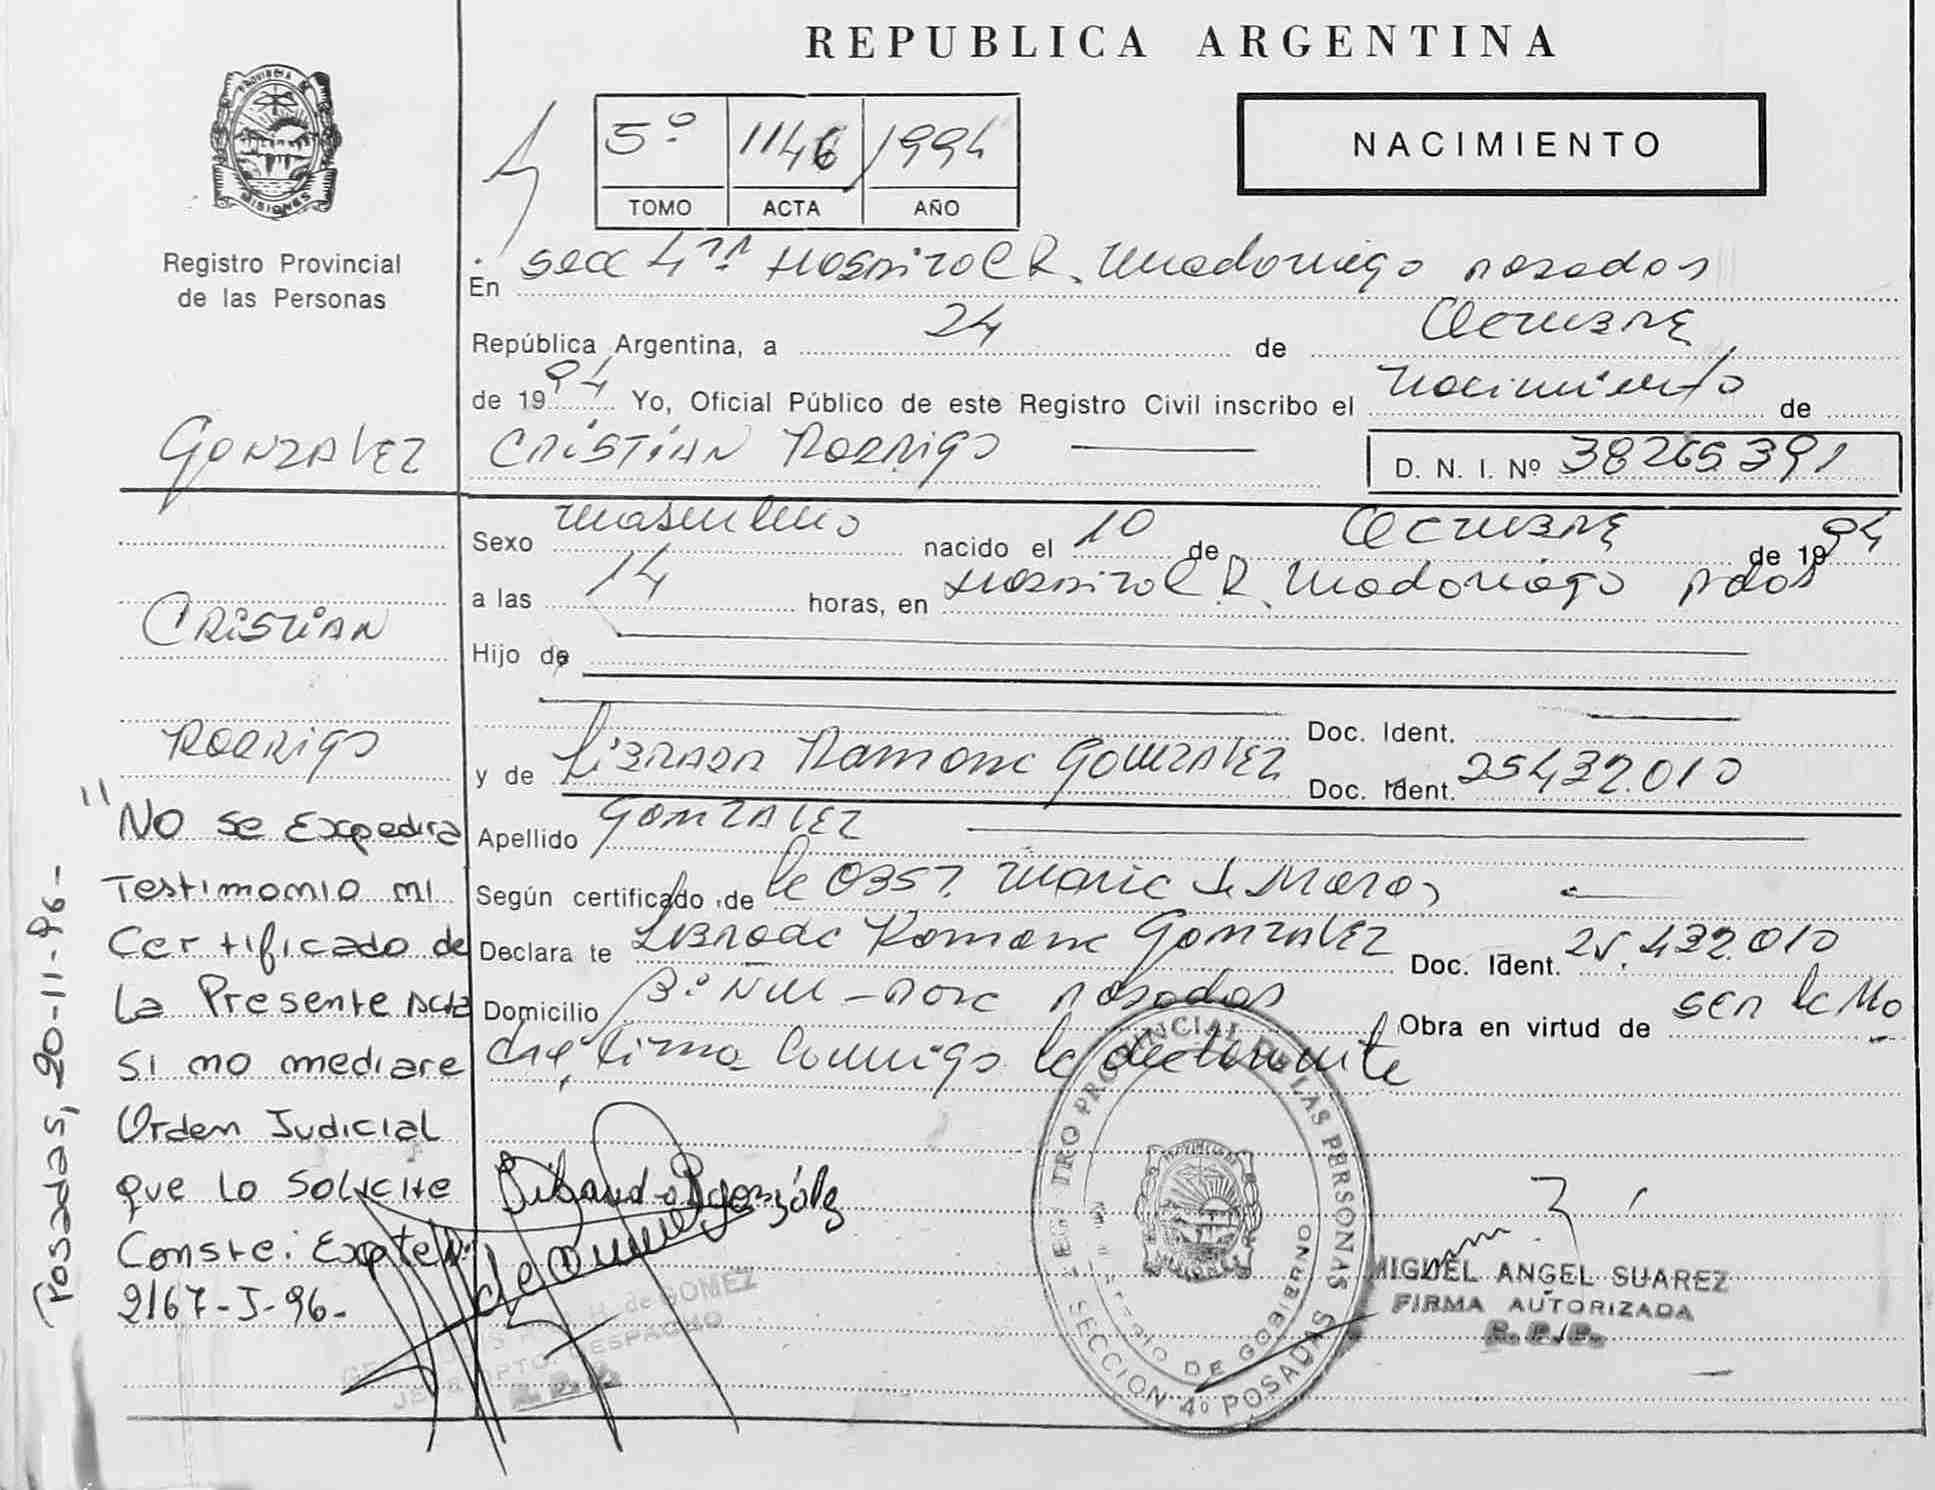 REPUBLICA ARGENTINA
PROVINCIA DE
MISIONES
Registro Provincial
de las Personas
5º 1146 1994
TOMO ACTA AÑO
NACIMIENTO
En Secc 4ta Hospital R. Madariaga Posadas
República Argentina, a 24 de Octubre
de 1994 Yo, Oficial Público de este Registro Civil inscribo el Nacimiento de
Cristian Rodrigo D. N. I. Nº 38265391
Sexo Masculino nacido el 10 de Octubre de 1994
a las 14 horas, en Hospital R. Madariaga Pdas
Hijo de
Doc. Ident.
y de Librada Ramona Gonzalez Doc. Ident. 25.432.010
Apellido Gonzalez
Según certificado de la Obst. Maria
Declara te Librada Ramona Gonzalez Doc. Ident. 25.432.010
Domicilio Posadas Obra en virtud de ser la Ma
dre, firma conmigo la declarante
Gonzalez
Cristian
Rodrigo
"No se Expedira
Testimonio ni
Certificado de
la Presente Acta
si no mediare
Orden Judicial
que lo Solicite
Conste: Expte Nº
2167-J-96-
Posadas, 20-11-96-
Librada R González
H. de GOMEZ
DPTO. DESPACHO
R. P. P.
REGISTRO PROVINCIAL DE LAS PERSONAS
MINISTERIO DE GOBIERNO
SECCION 4º POSADAS
MIGUEL ANGEL SUAREZ
FIRMA AUTORIZADA
R. P. P.